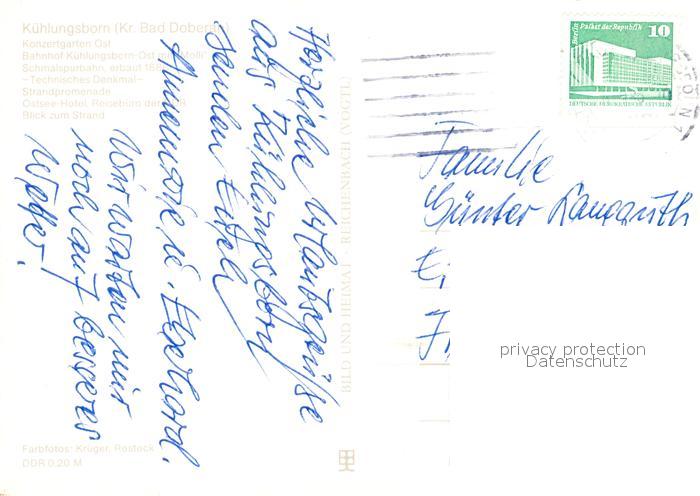 Kühlungsborn (Kr. Bad Doberan)
Konzertgarten Ost
Bahnhof Kühlungsborn-Ost mit "Molli"
Schmalspurbahn, erbaut
–Technisches Denkmal–
Strandpromenade
Ostsee-Hotel, Reisebüro der DDR
Blick zum Strand
Herzliche Urlaubsgrüße
aus Kühlungsborn
senden Euch
Annemarie u. Eberhard.
Wir warten nur
noch auf besseres
Wetter!
Farbfotos: Krüger, Rostock
DDR 0,20 M
BILD UND HEIMAT · REICHENBACH (VOGTL
Berlin Palast der Republik
10
DEUTSCHE DEMOKRATISCHE REPUBLIK
Familie
Günter Langguth
privacy protection
Datenschutz